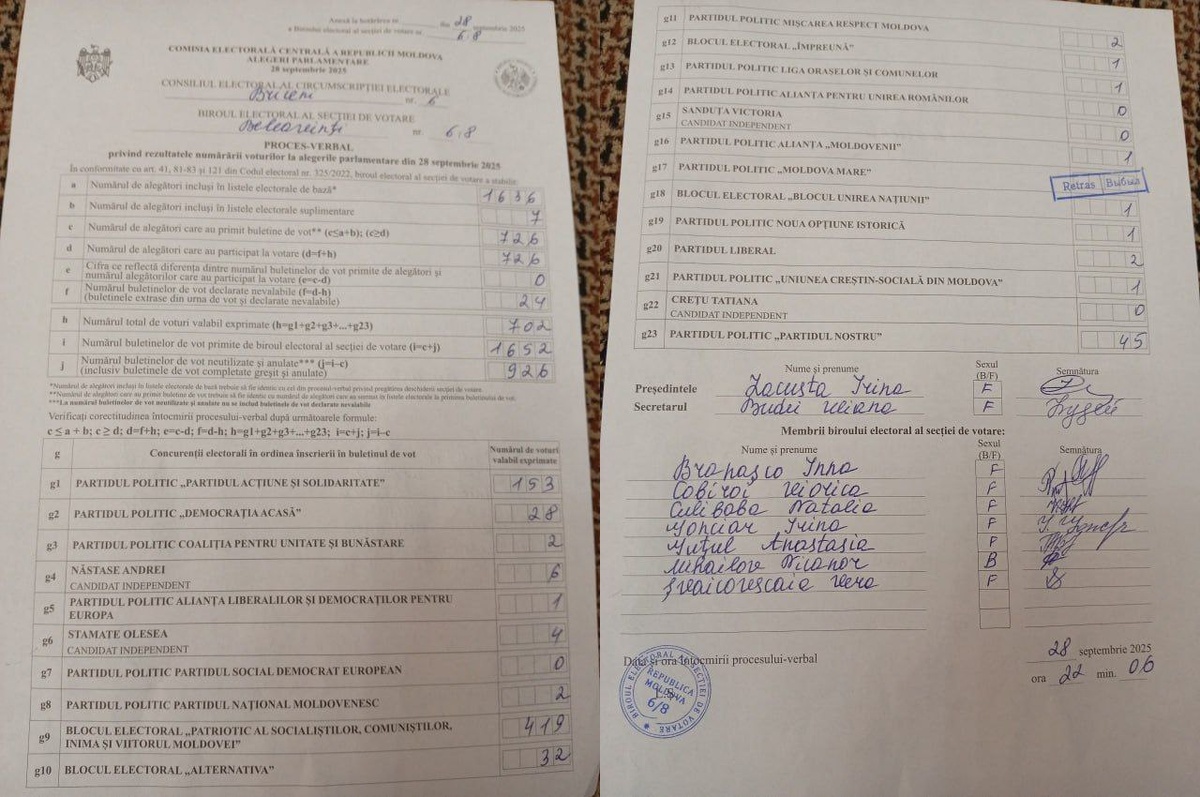 Anexă la hotărârea nr. din 28 septembrie 2025
a Biroului electoral al secției de votare nr. 6.8
COMISIA ELECTORALĂ CENTRALĂ A REPUBLICII MOLDOVA
ALEGERI PARLAMENTARE
28 septembrie 2025
CONSILIUL ELECTORAL AL CIRCUMSCRIPȚIEI ELECTORALE
Briceni nr. 6
BIROUL ELECTORAL AL SECȚIEI DE VOTARE
nr. 6.8
PROCES-VERBAL
privind rezultatele numărării voturilor la alegerile parlamentare din 28 septembrie 2025
În conformitate cu art. 41, 81-83 și 121 din Codul electoral nr. 325/2022, biroul electoral al secției de votare a stabilit:
a Numărul de alegători incluși în listele electorale de bază* 1636
b Numărul de alegători incluși în listele electorale suplimentare 7
c Numărul de alegători care au primit buletine de vot** (c≤a+b); (c≥d) 726
d Numărul de alegători care au participat la votare (d=f+h) 726
e Cifra ce reflectă diferența dintre numărul buletinelor de vot primite de alegători și
numărul alegătorilor care au participat la votare (e=c-d) 0
f Numărul buletinelor de vot declarate nevalabile (f=d-h)
(buletinele extrase din urna de vot și declarate nevalabile) 24
h Numărul total de voturi valabil exprimate (h=g1+g2+g3+...+g23) 702
i Numărul buletinelor de vot primite de biroul electoral al secției de votare (i=c+j) 1652
j Numărul buletinelor de vot neutilizate și anulate*** (j=i–c)
(inclusiv buletinele de vot completate greșit și anulate) 926
*Numărul de alegători incluși în listele electorale de bază trebuie să fie identic cu cel din procesul-verbal privind pregătirea deschiderii secției de votare.
**Numărul de alegători care au primit buletine de vot trebuie să fie identic cu numărul de alegători care au semnat în listele electorale la primirea buletinului de vot.
***La numărul buletinelor de vot neutilizate și anulate nu se includ buletinele de vot declarate nevalabile
Verificați corectitudinea întocmirii procesului-verbal după următoarele formule:
c ≤ a + b; c ≥ d; d=f+h; e=c-d; f=d-h; h=g1+g2+g3+...+g23; i=c+j; j=i–c
g Concurenții electorali în ordinea înscrierii în buletinul de vot Numărul de voturi
valabil exprimate
g1 PARTIDUL POLITIC „PARTIDUL ACȚIUNE ȘI SOLIDARITATE” 153
g2 PARTIDUL POLITIC „DEMOCRAȚIA ACASĂ” 28
g3 PARTIDUL POLITIC COALIȚIA PENTRU UNITATE ȘI BUNĂSTARE 2
g4 NĂSTASE ANDREI
CANDIDAT INDEPENDENT 6
g5 PARTIDUL POLITIC ALIANȚA LIBERALILOR ȘI DEMOCRAȚILOR PENTRU
EUROPA 1
g6 STAMATE OLESEA
CANDIDAT INDEPENDENT 4
g7 PARTIDUL POLITIC PARTIDUL SOCIAL DEMOCRAT EUROPEAN 0
g8 PARTIDUL POLITIC PARTIDUL NAȚIONAL MOLDOVENESC 2
g9 BLOCUL ELECTORAL „PATRIOTIC AL SOCIALIȘTILOR, COMUNIȘTILOR,
INIMA ȘI VIITORUL MOLDOVEI” 419
g10 BLOCUL ELECTORAL „ALTERNATIVA” 32
g11 PARTIDUL POLITIC MIȘCAREA RESPECT MOLDOVA 2
g12 BLOCUL ELECTORAL „ÎMPREUNĂ” 1
g13 PARTIDUL POLITIC LIGA ORAȘELOR ȘI COMUNELOR 1
g14 PARTIDUL POLITIC ALIANȚA PENTRU UNIREA ROMÂNILOR 0
g15 SANDUȚA VICTORIA
CANDIDAT INDEPENDENT 0
g16 PARTIDUL POLITIC ALIANȚA „MOLDOVENII” 1
g17 PARTIDUL POLITIC „MOLDOVA MARE” Retras Выбыл
g18 BLOCUL ELECTORAL „BLOCUL UNIREA NAȚIUNII” 1
g19 PARTIDUL POLITIC NOUA OPȚIUNE ISTORICĂ 1
g20 PARTIDUL LIBERAL 2
g21 PARTIDUL POLITIC „UNIUNEA CREȘTIN-SOCIALĂ DIN MOLDOVA” 1
g22 CREȚU TATIANA
CANDIDAT INDEPENDENT 0
g23 PARTIDUL POLITIC „PARTIDUL NOSTRU” 45
Nume și prenume Sexul
(B/F) Semnătura
Președintele Lacusta Irina F
Secretarul F
Membrii biroului electoral al secției de votare:
Nume și prenume Sexul
(B/F) Semnătura
Inna F
F
Culibaba Natalia F
Irina F
Anastasia F
Mihailov Nicanor B
F
Data și ora întocmirii procesului-verbal
28 septembrie 2025
ora 22 min. 06
BIROUL ELECTORAL AL SECȚIEI DE VOTARE
REPUBLICA
MOLDOVA
L.Ș.
6/8